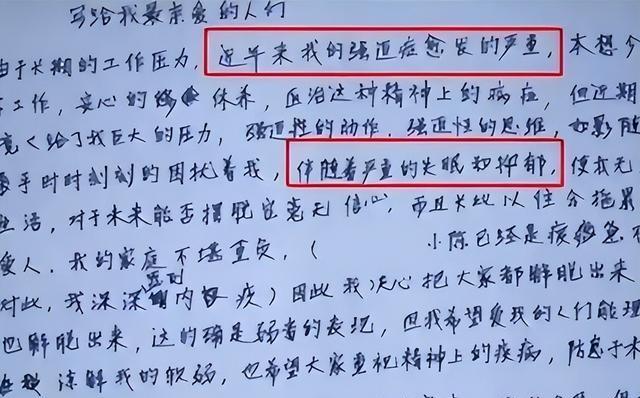 写给我最亲爱的人们
由于长期的工作压力,近年来我的强迫症愈发的严重,本想今
工作,安心的休养,医治这种精神上的病症,但近期
境给了我巨大的压力,强迫性的动作,强迫性的思维,如影随
乎时时刻刻的困扰着我,伴随着严重的失眠和抑郁,使我无
生活,对于未来能否摆脱它毫无信心,而且长此以往会拖累
爱人,我的家庭不堪重负,(小陈已经是疲惫
对此,我深深内疚)因此我决心把大家都解脱出来
也解脱出来,这的确是弱者的表现,但我希望爱我的人们能理
谅解我的软弱,也希望大家重视精神上的疾病,防患于未